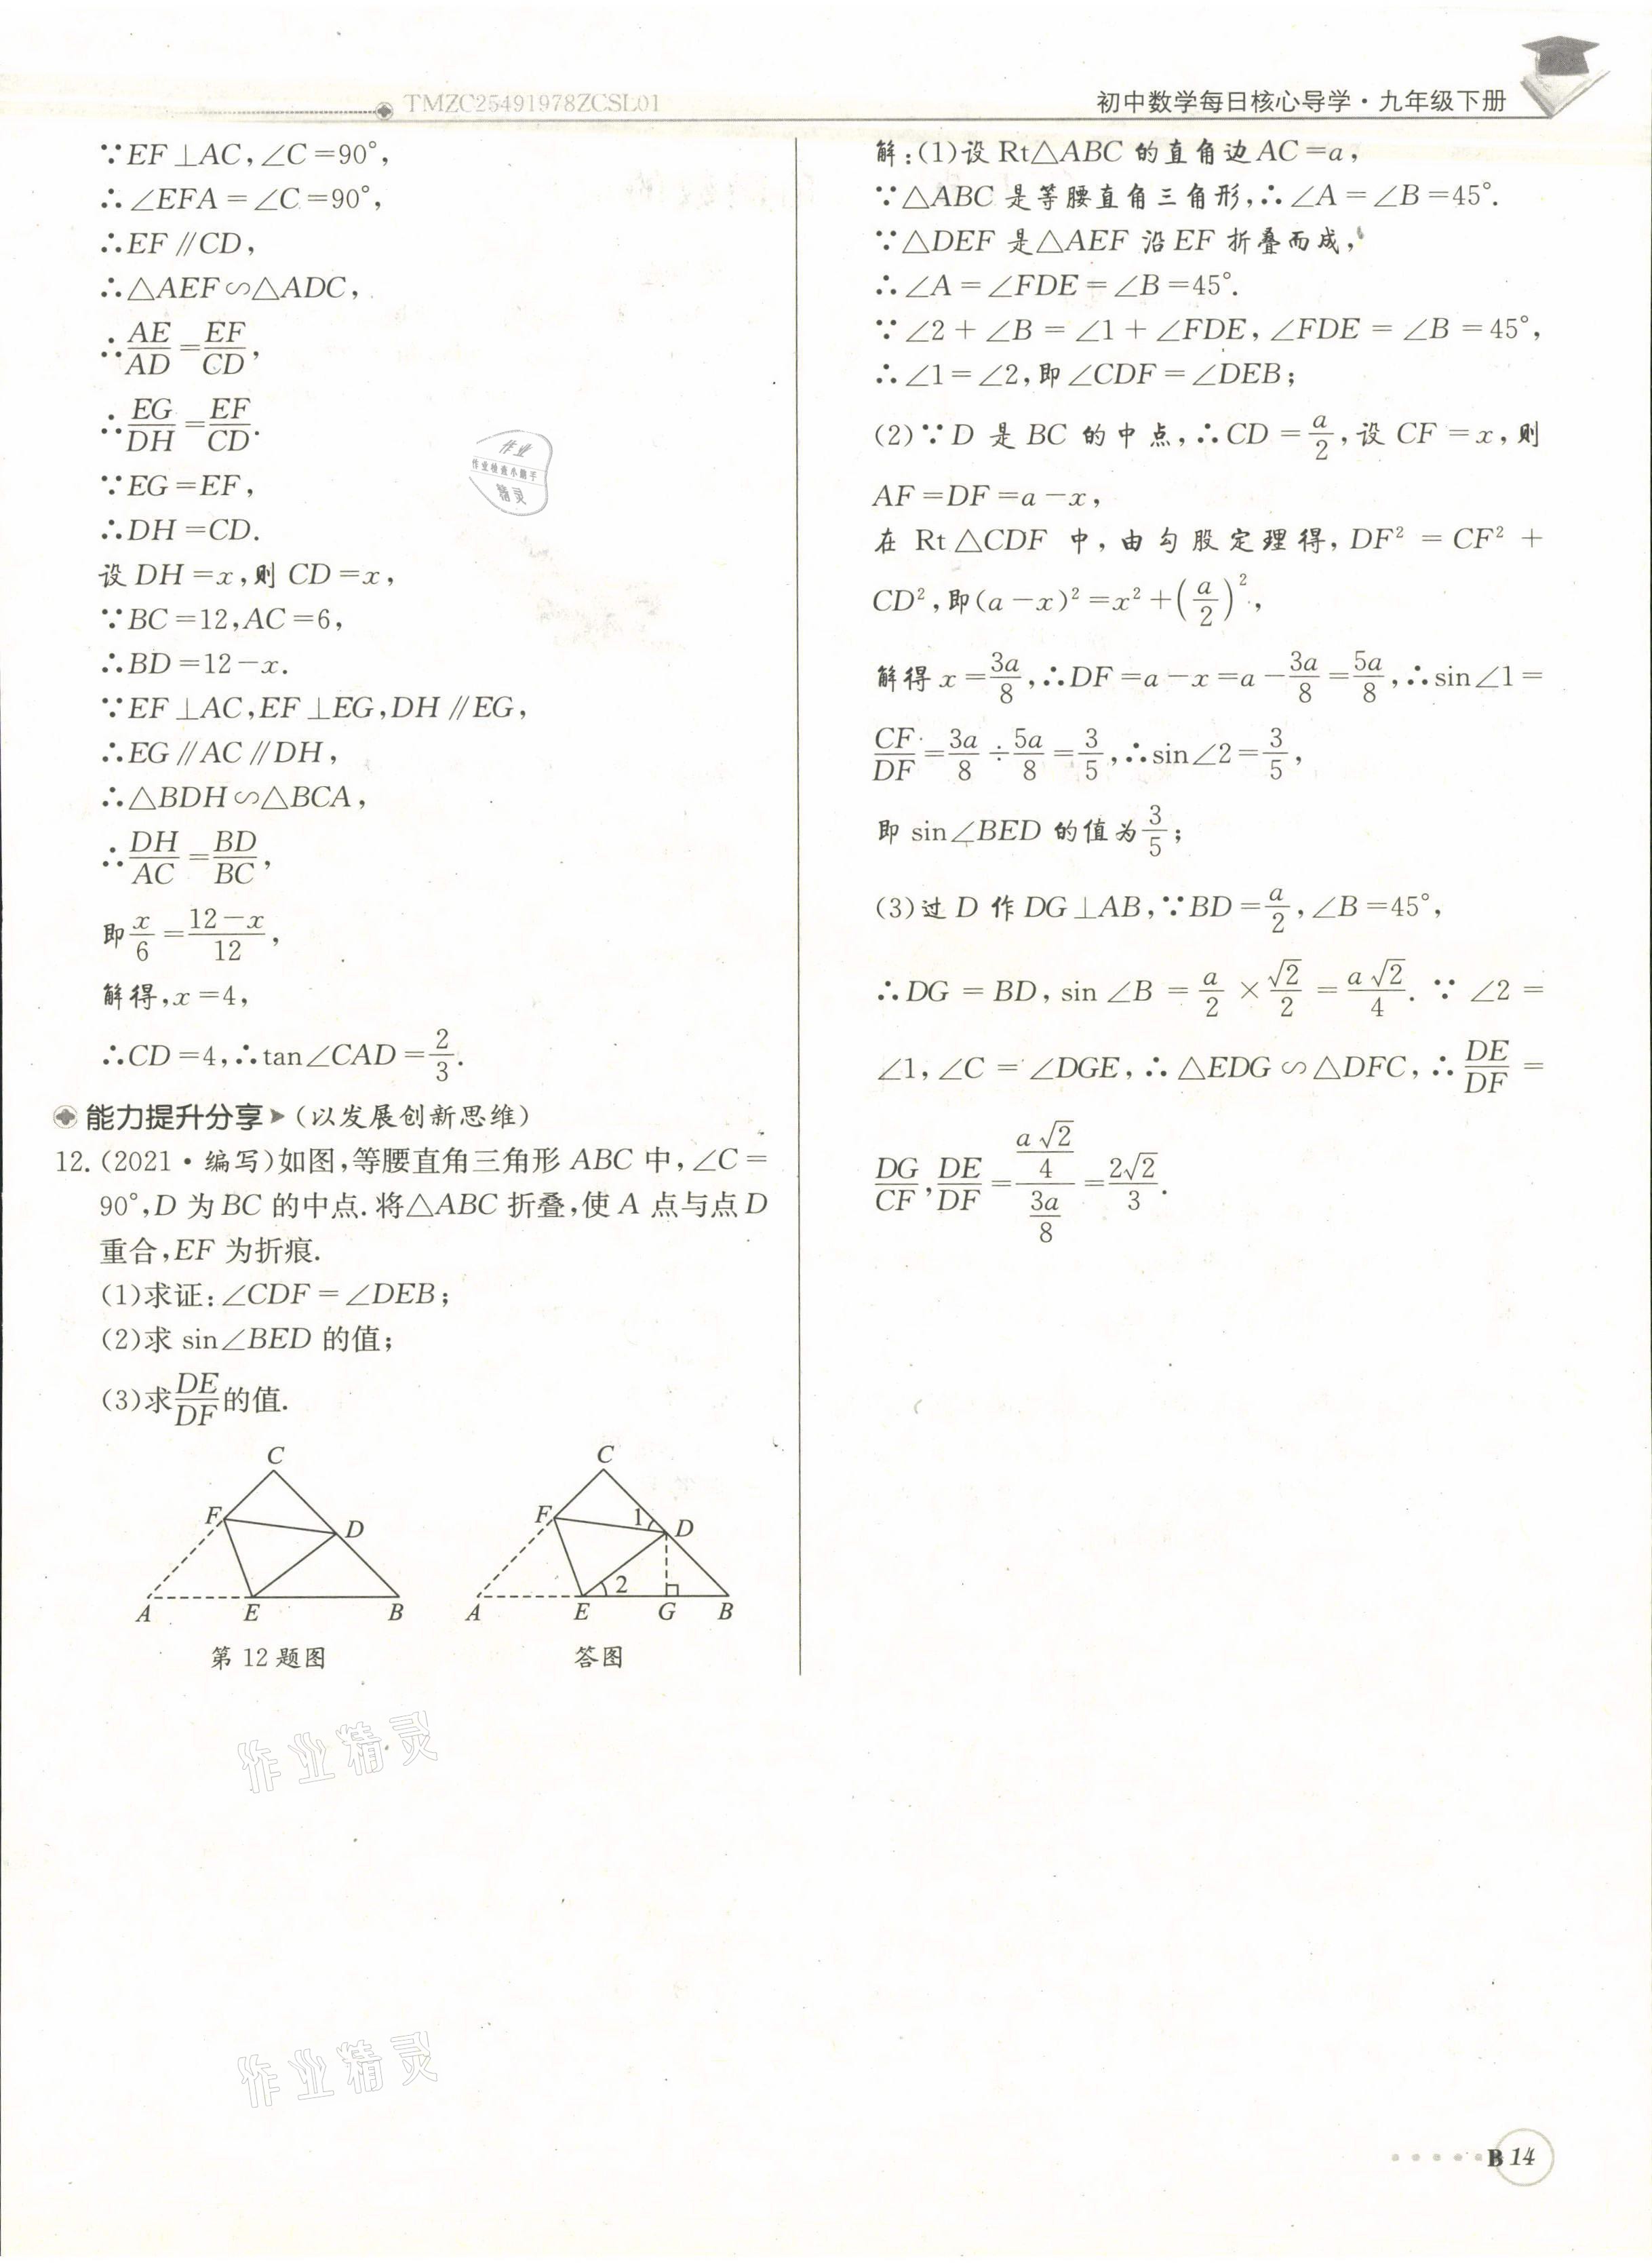 TMZC25491978ZCSL01
初中数学每日核心导学·九年级下册
∵EF⊥AC,∠C=90°,
∴∠EFA=∠C=90°,
∴EF∥CD,
∴△AEF∽△ADC,
∴AE/AD=EF/CD,
∴EG/DH=EF/CD.
∵EG=EF,
∴DH=CD.
设DH=x,则CD=x,
∵BC=12,AC=6,
∴BD=12-x.
∵EF⊥AC,EF⊥EG,DH∥EG,
∴EG∥AC∥DH,
∴△BDH∽△BCA,
∴DH/AC=BD/BC,
即x/6=(12-x)/12,
解得,x=4,
∴CD=4,∴tan∠CAD=2/3.
能力提升分享(以发展创新思维)
12.(2021·编写)如图,等腰直角三角形ABC中,∠C=
90°,D为BC的中点.将△ABC折叠,使A点与点D
重合,EF为折痕.
(1)求证:∠CDF=∠DEB;
(2)求 sin∠BED 的值;
(3)求DE/DF的值.
C
F
D
A
E
B
第12题图
C
F
1
D
2
A
E
G
B
答图
解:(1)设Rt△ABC的直角边AC=a,
∵△ABC是等腰直角三角形,∴∠A=∠B=45°.
∵△DEF是△AEF沿EF折叠而成,
∴∠A=∠FDE=∠B=45°.
∵∠2+∠B=∠1+∠FDE,∠FDE=∠B=45°,
∴∠1=∠2,即∠CDF=∠DEB;
(2)∵D是BC的中点,∴CD=a/2,设CF=x,则
AF=DF=a-x,
在Rt△CDF中,由勾股定理得,DF²=CF²+
CD²,即(a-x)²=x²+(a/2)²,
解得x=3a/8,∴DF=a-x=a-3a/8=5a/8,∴sin∠1=
CF/DF=3a/8÷5a/8=3/5,∴sin∠2=3/5,
即sin∠BED的值为3/5;
(3)过D作DG⊥AB,∵BD=a/2,∠B=45°,
∴DG=BD,sin∠B=a/2×√2/2=a√2/4.∵∠2=
∠1,∠C=∠DGE,∴△EDG∽△DFC,∴DE/DF=
DG/CF,DE/DF=(a√2/4)/(3a/8)=2√2/3.
作业
作业检查小助手
精灵
作业精灵
作业精灵
B 14